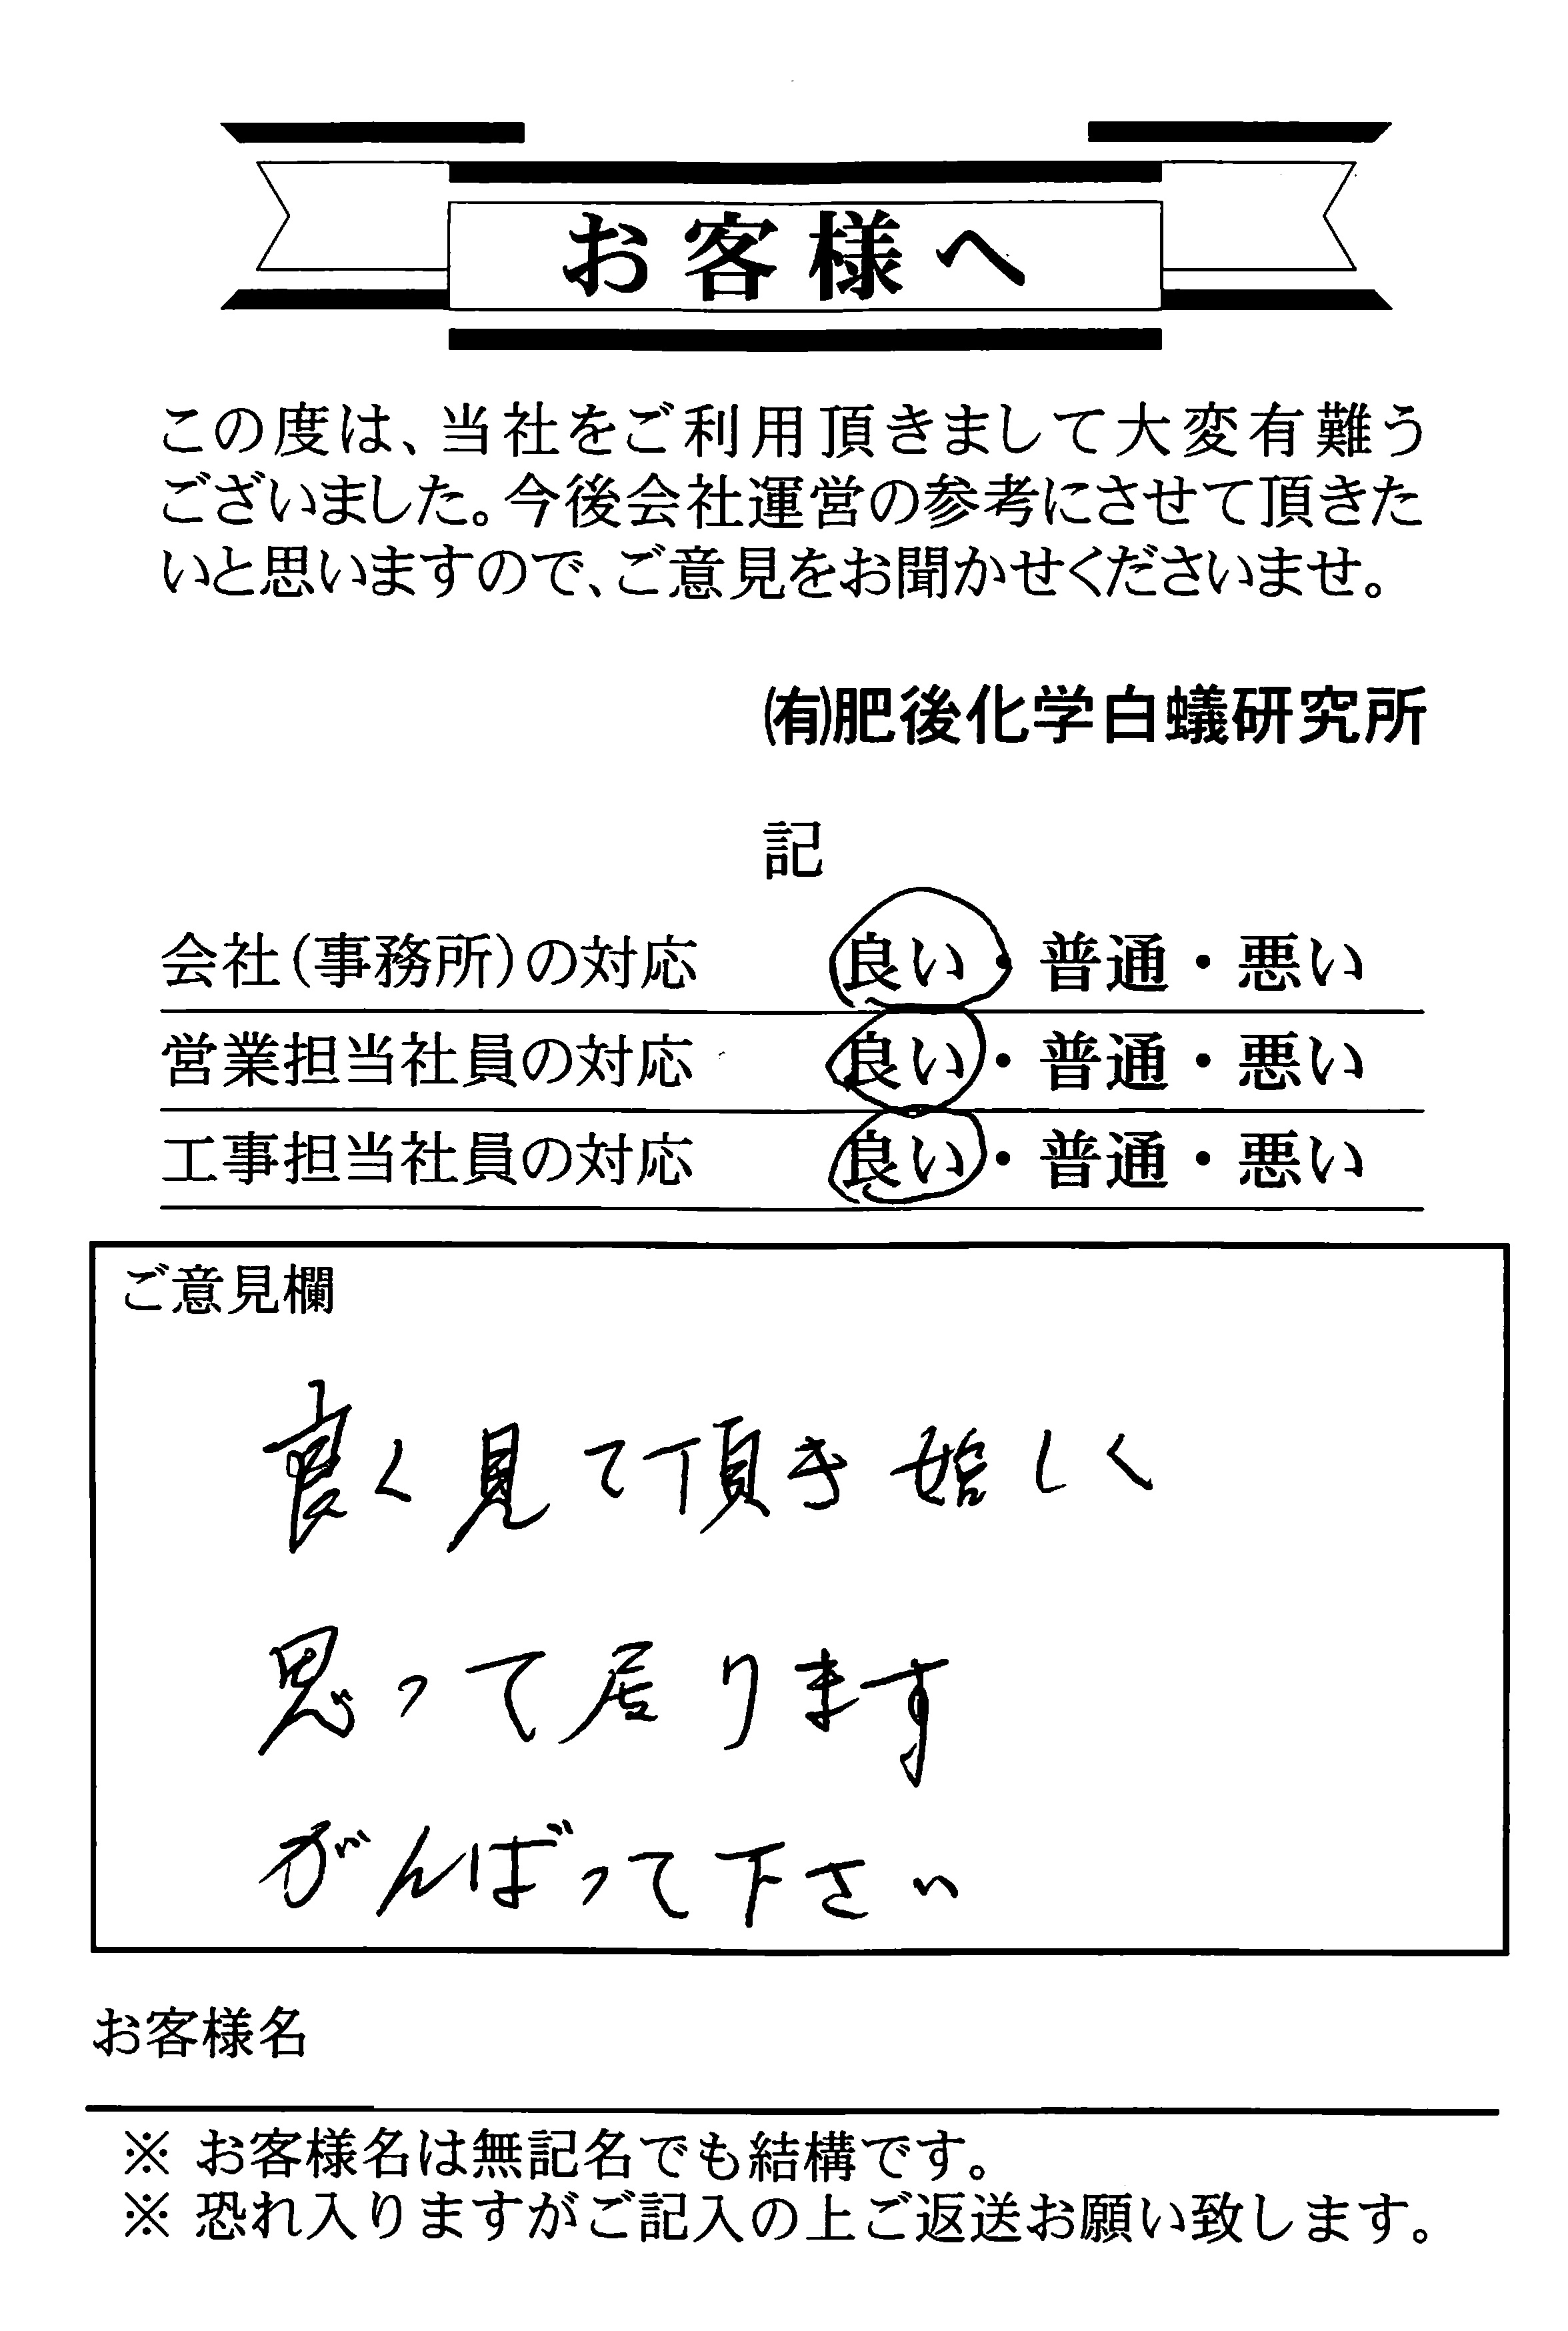 お客様へ
この度は、当社をご利用頂きまして大変有難う
ございました。今後会社運営の参考にさせて頂きた
いと思いますので、ご意見をお聞かせくださいませ。
㈲肥後化学白蟻研究所
記
会社（事務所）の対応 良い・普通・悪い
営業担当社員の対応 良い・普通・悪い
工事担当社員の対応 良い・普通・悪い
ご意見欄
良く見て頂き嬉しく
思って居ります
がんばって下さい
お客様名
※ お客様名は無記名でも結構です。
※ 恐れ入りますがご記入の上ご返送お願い致します。